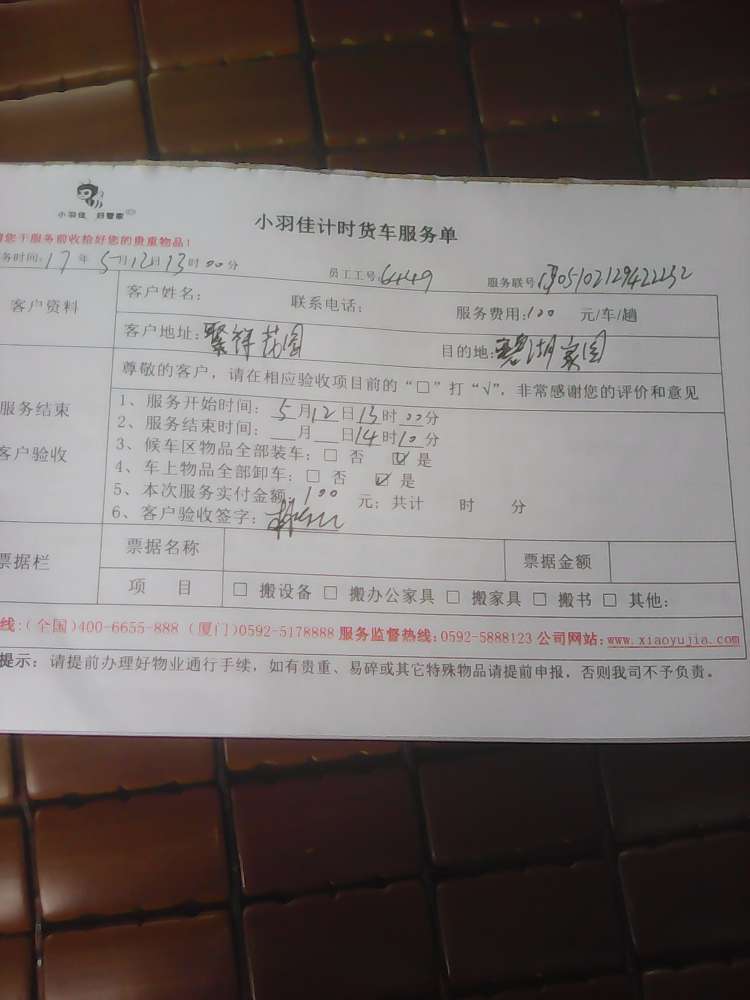 小羽佳 好管家
小羽佳计时货车服务单
请您于服务前收拾好您的贵重物品！
务时间：17年5月12日13时00分 员工工号：6449 服务联号
客户资料 客户姓名： 联系电话： 服务费用：100 元/车/趟
客户地址：聚祥花园 目的地：碧湖家园
服务结束
客户验收
尊敬的客户，请在相应验收项目前的“□”打“√”，非常感谢您的评价和意见
1、服务开始时间：5月12日13时00分
2、服务结束时间：___月___日14时10分
3、候车区物品全部装车：□ 否 ☑ 是
4、车上物品全部卸车：□ 否 ☑ 是
5、本次服务实付金额：100 元；共计 时 分
6、客户验收签字：
票据栏 票据名称 票据金额
项 目 □ 搬设备 □ 搬办公家具 □ 搬家具 □ 搬书 □ 其他：
线：(全国)400-6655-888 (厦门)0592-5178888 服务监督热线：0592-5888123 公司网站：www.xiaoyujia.com
提示：请提前办理好物业通行手续，如有贵重、易碎或其它特殊物品请提前申报，否则我司不予负责。